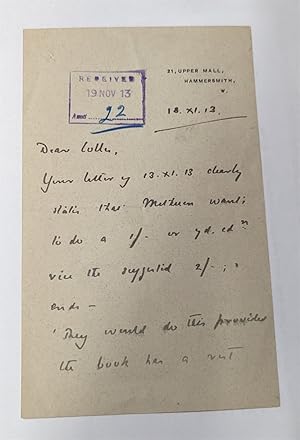 RECEIVED
19 NOV 13
Ansd. 22
21, UPPER MALL,
HAMMERSMITH,
W.
18.XI.13.
Dear Colles,
Your letter of 13.XI.13 clearly
states that Methuen wants
to do a 1/- or 7d. edn
vice the suggested 2/-;
ends -
'They would do this provided
the book has a rest